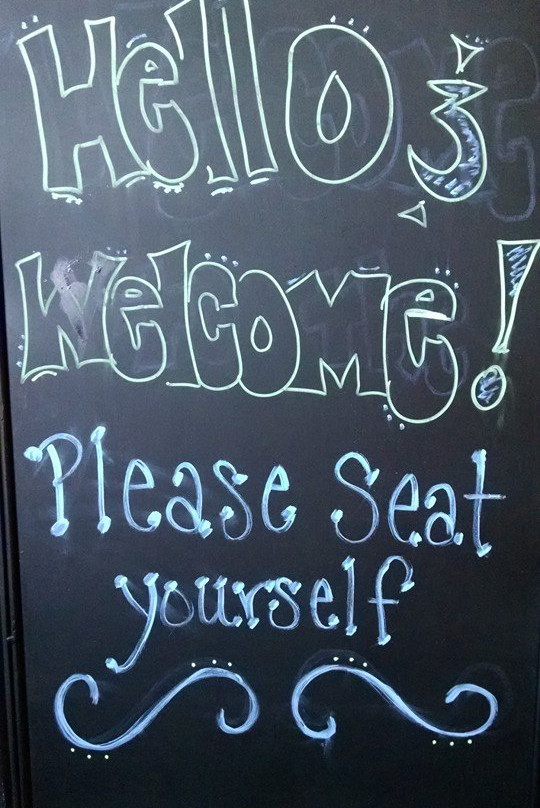 Hello &
Welcome!
Please Seat
yourself